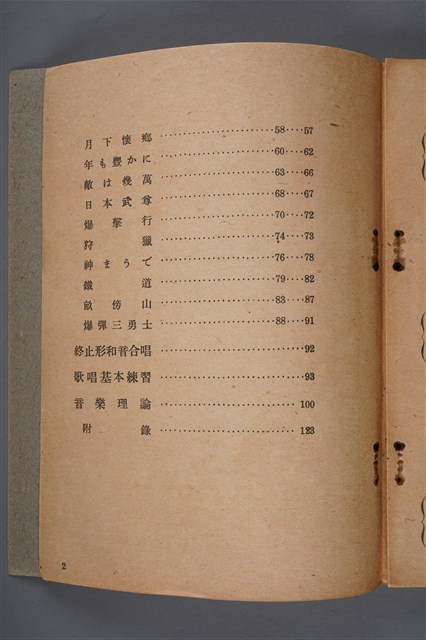 月下懷鄉……………………58……57
年も豐かに……………………60……62
敵は幾萬……………………63……66
日本武尊……………………68……67
爆擊行……………………70……72
狩獵……………………74……73
神まうで……………………76……78
鐵道……………………79……82
畝傍山……………………83……87
爆彈三勇士……………………88……91
終止形和音合唱……………………92
歌唱基本練習……………………93
音樂理論……………………100
附錄……………………123
2